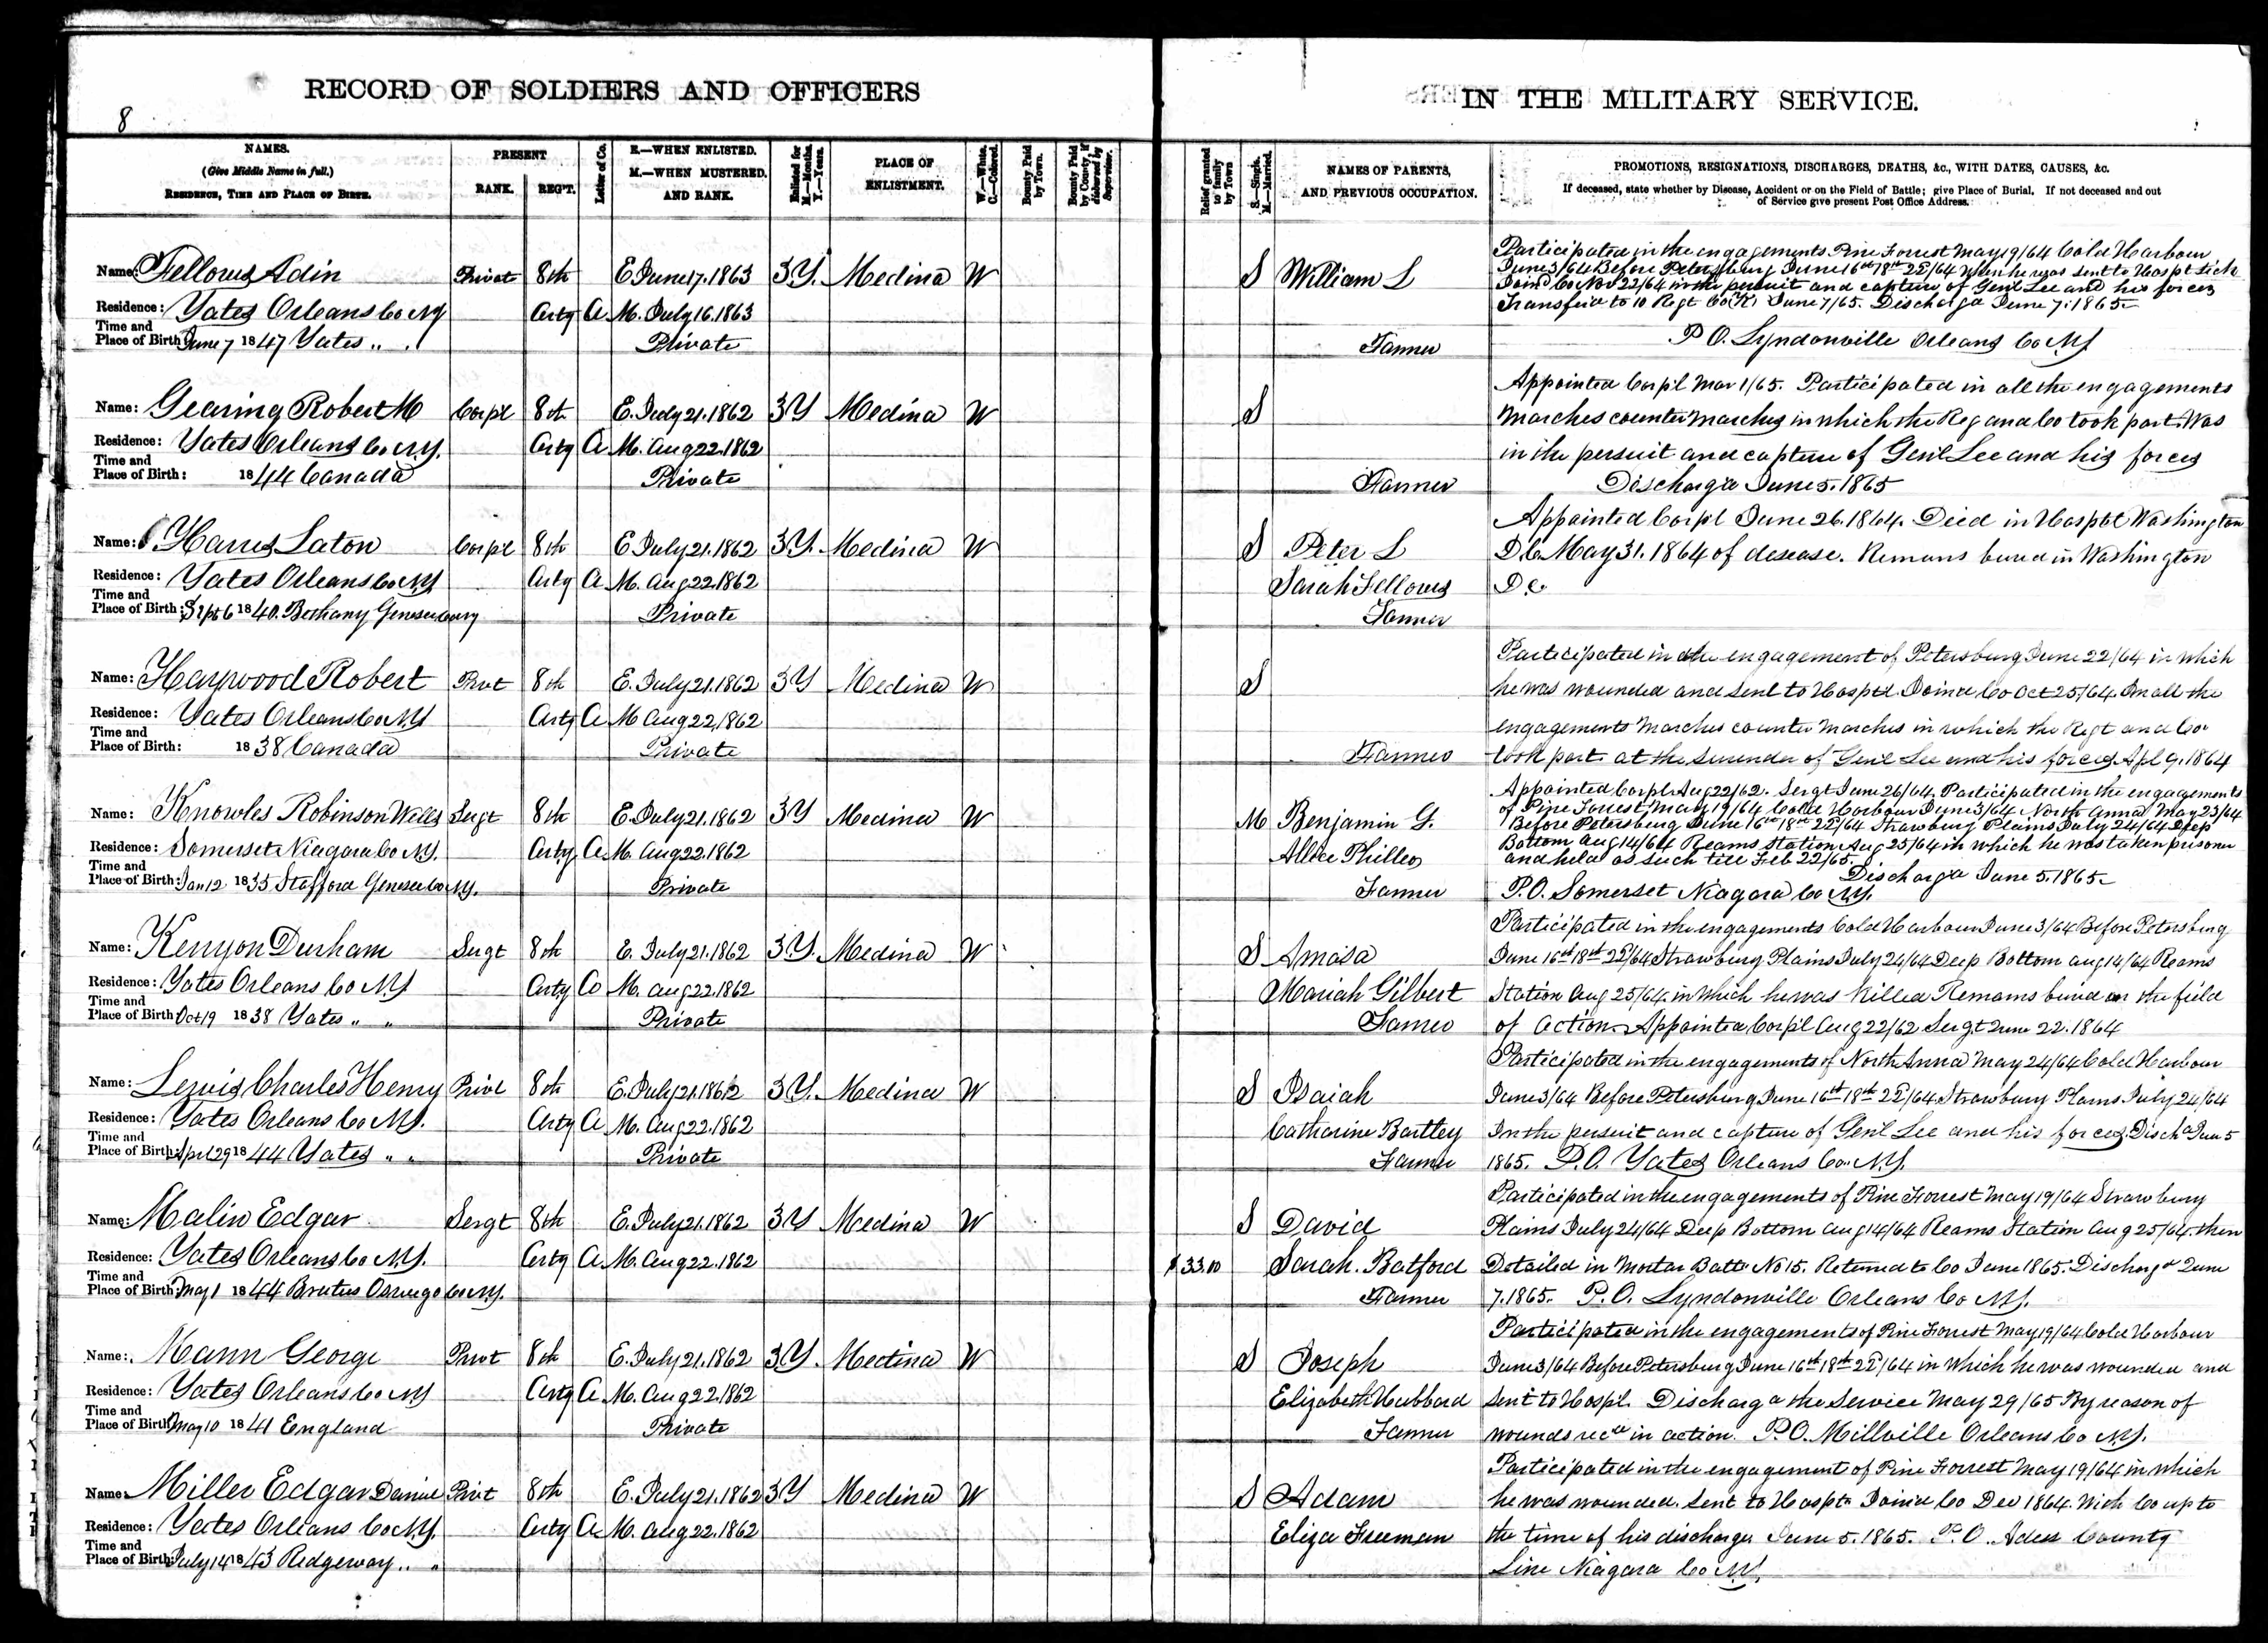 RECORD OF SOLDIERS AND OFFICERS
IN THE MILITARY SERVICE.
8
NAMES.
(Give Middle Name in full.)
RESIDENCE, TIME AND PLACE OF BIRTH.
PRESENT
RANK.
REG'T.
Letter of Co.
E.—WHEN ENLISTED.
M.—WHEN MUSTERED.
AND RANK.
Enlisted for
M.—Months.
Y.—Years.
PLACE OF
ENLISTMENT.
W.—White.
C.—Colored.
Bounty Paid
by Town.
Bounty Paid
by County, if
disbursed by
Supervisor.
Relief granted
to family
by Town
S.—Single.
M.—Married.
NAMES OF PARENTS,
AND PREVIOUS OCCUPATION.
PROMOTIONS, RESIGNATIONS, DISCHARGES, DEATHS, &c., WITH DATES, CAUSES, &c.
If deceased, state whether by Disease, Accident or on the Field of Battle; give Place of Burial. If not deceased and out
of Service give present Post Office Address.
Name: Fellows Adin Privat 8th E June 17. 1863 3 Y. Medina W S William L
Residence: Yates Orleans Co NY Arty A M. July 16. 1863
Time and
Place of Birth June 7 1847 Yates " . Private Farmer
Participated in the engagements Pine Forrest May 19/64 Cold Harbour
June 3/64 Before Petersburg June 16th 18th 22d/64 when he was sent to Hospt sick
Joind Co Nov 22/64 in the persuit and capture of Genl Lee and his forces
Transferd to 10 Regt Co K June 7/65. Dischargd June 7. 1865
P O. Lyndonville Orleans Co NY
Name: Gearing Robert M Corpl 8th E. July 21. 1862 3 Y Medina W S
Residence: Yates Orleans Co N.Y. Arty A M. Aug 22. 1862
Time and
Place of Birth: 1844 Canada Private Farmer
Appointed Corpl Mar 1/65. Participated in all the engagements
Marches counter Marches in which the Reg and Co took part. Was
in the persuit and capture of Genl Lee and his forces
Dischargd June 5. 1865
Name: Harris Laton Corpl 8th E July 21. 1862 3 Y. Medina W S Peter L
Residence: Yates Orleans Co NY Arty A M. Aug 22. 1862 Sarah Fellows
Time and
Place of Birth: Sept 6 1840. Bethany Genesee Co NY Private Farmer
Appointed Corpl June 26. 1864. Died in Hosptl Washington
D.C. May 31. 1864 of desease. Remans buried in Washington
D.C
Name: Haywood Robert Privt 8th E. July 21. 1862 3 Y Medina W S
Residence: Yates Orleans Co NY Arty A M Aug 22, 1862
Time and
Place of Birth: 1838 Canada Private Farmer
Participated in the engagement of Petersburg June 22/64 in which
he was wounded and sent to Hosptl. Joind Co Oct 25/64. In all the
engagements Marches counter Marches in which the Regt and Co.
took part. at the surender of Genl Lee and his forces Apl 9. 1864
Name: Knowles Robinson Wells Sergt 8th E. July 21. 1862 3 Y Medina W M Benjamin G.
Residence: Somerset Niagara Co N.Y. Arty A M. Aug 22. 1862
Time and
Place of Birth: Jan 12 1835 Stafford Genesee Co N.Y. Private Farmer
Appointed Corpl Aug 22/62. Sergt June 26/64. Participated in the engagements
of Pine Forrest May 19/64 Cold Harbour June 3/64 North Anna May 23/64
Before Petersburg June 16th 18th 22d/64 Strawbury Plains July 24/64 Deep
Bottom Aug 14/64 Reams Station Aug 25/64 in which he was taken prisoner
and held as such till Feb 22/65.
Dischargd June 5. 1865
P.O. Somerset Niagara Co N.Y.
Name: Kenyon Durham Sergt 8th E. July 21. 1862 3 Y. Medina W S Amasa
Residence: Yates Orleans Co NY Arty Co M. Aug 22. 1862 Mariah Gilbert
Time and
Place of Birth Oct 19 1838 Yates " " Private Farmer
Participated in the engagements Cold Harbour June 3/64 Before Petersburg
June 16th 18th 22d/64 Strawbury Plains July 24/64 Deep Bottom Aug 14/64 Reams
Station Aug 25/64. in which he was killed Remans buried on the field
of action. Appointed Corpl Aug 22/62 Sergt June 22. 1864
Name: Lewis Charles Henry Privt 8th E. July 21. 1862 3 Y. Medina W S Isaiah
Residence: Yates Orleans Co NY. Arty A M. Aug 22. 1862 Catharine Bartley
Time and
Place of Birth: Apl 29 1844 Yates " " Private Farmer
Participated in the engagements of North Anna May 24/64 Cold Harbour
June 3/64 Before Petersburg June 16th 18th 22d/64 Strawbury Plains July 24/64
In the persuit and capture of Genl Lee and his forces. Dischd June 5
1865. P.O. Yates Orleans Co. N.Y.
Name: Malin Edgar Sergt 8th E. July 21. 1862 3 Y Medina W S David
Residence: Yates Orleans Co N.Y. Arty A M. Aug 22. 1862 $33.00 Sarah. Batford
Time and
Place of Birth: May 1 1844 Brutus Oswego Co N.Y. Farmer
Participated in the engagements of Pine Forrest May 19/64 Strawbury
Plains July 24/64 Deep Bottom Aug 14/64 Reams Station Aug 25/64. then
Detailed in Mortar Batt No 15. Returned to Co June 1865. Dischargd June
7. 1865. P.O. Lyndonville Orleans Co NY.
Name: Mann George Privt 8th E. July 21. 1862 3 Y. Medina W S Joseph
Residence: Yates Orleans Co NY Arty A M. Aug 22. 1862 Elizabeth Hubbard
Time and
Place of Birth May 10 1841 England Private Farmer
Participated in the engagements of Pine Forrest May 19/64 Cold Harbour
June 3/64 Before Petersburg June 16th 18th 22d/64 in which he was wounded and
sent to Hospl. Dischargd the Service May 29/65 By reason of
wounds recd in action. P.O. Millville Orleans Co N.Y.
Name: Miller Edgar Daniel Privt 8th E. July 21. 1862 3 Y Medina W S Adam
Residence: Yates Orleans Co N.Y. Arty A M. Aug 22. 1862 Eliza Freeman
Time and
Place of Birth: July 14 1843 Ridgeway " "
Participated in the engagement of Pine Forrest May 19/64 in which
he was wounded. Sent to Hospt. Joind Co Dec 1864. With Co up to
the time of his discharge June 5. 1865. P.O. County
Line Niagara Co N.Y.